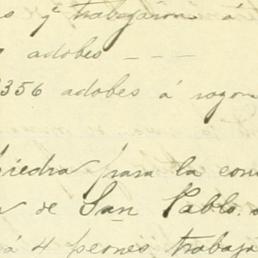 s qe trabajaron á
adobes - - -
356 adobes á razon
piedra para la con
de San Pablo.
á 4 peones trabaja